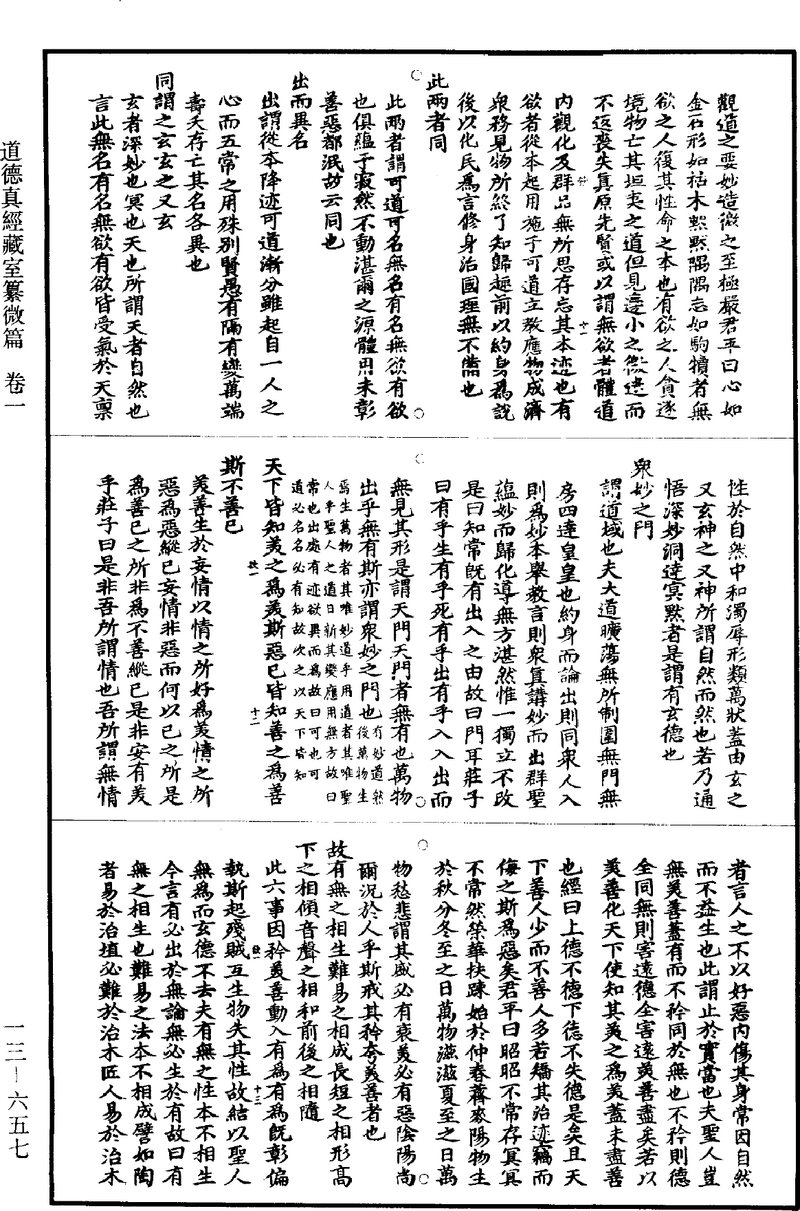 觀道之要妙造微之至極嚴君平曰心如
金石形如枯木默默隅隅志如駒犢者無
欲之人復其性命之本也有欲之人貪逐
境物亡其坦夷之道但見邊小之徼迷而
不返喪失真原先賢或以謂無欲者體道
內觀化及群品無所思存忘其本迹也有
欲者從本起用施于可道立教應物成濟
衆務見物所終了知歸趣前以約身爲說
後以化民爲言修身治國理無不備也
此兩者同
此兩者謂可道可名無名有名無欲有欲
也俱蘊于寂然不動湛爾之源體用未彰
善惡都泯故云同也
出而異名
出謂從本降迹可道漸分雖起自一人之
心而五常之用殊別賢愚有隔有變萬端
壽夭存亡其名各異也
同謂之玄玄之又玄
玄者深妙也冥也天也所謂天者自然也
言此無名有名無欲有欲皆受氣於天稟
性於自然中和濁辱形類萬狀蓋由玄之
又玄神之又神所謂自然而然也若乃通
悟深妙洞達冥默者是謂有玄德也
衆妙之門
謂道域也夫大道曠蕩無所制圍無門無
房四達皇皇也約身而論出則同衆人入
則爲妙本舉教言則衆真講妙而出群聖
蘊妙而歸化導無方湛然惟一獨立不改
是曰知常既有出入之由故曰門耳莊子
曰有乎生有乎死有乎出有乎入入出而
無見其形是謂天門天門者無有也萬物
出乎無有斯亦謂衆妙之門也有妙道然後萬物生
焉生萬物者其唯妙道乎用道者其唯聖
人乎聖人之道日新其變應用無方故曰
常也出處有迹欲異而爲故曰可也可
道必名名必有知故次之以天下皆知
天下皆知美之爲美斯惡已皆知善之爲善
斯不善已
美善生於妄情以情之所好爲美情之所
惡爲惡縱已妄情非惡而何以已之所是
爲善已之所非爲不善縱已是非安有美
乎莊子曰是非吾所謂情也吾所謂無情
者言人之不以好惡內傷其身常因自然
而不益生也此謂止於實當也夫聖人豈
無美善蓋有而不矜同於無也不矜則德
全同無則害遠德全害遠美善盡矣若以
美善化天下使知其美之爲美蓋未盡善
也經曰上德不德下德不失德是矣且天
下善人少而不善人多若矯其治迹竊而
侮之斯爲惡矣君平曰昭昭不常存冥冥
不常然榮華扶踈始於仲春薺麥陽物生
於秋分冬至之日萬物滋滋夏至之日萬
物愁悲謂其盛必有衰美必有惡陰陽尚
爾況於人乎斯戒其矜夸美善者也
故有無之相生難易之相成長短之相形高
下之相傾音聲之相和前後之相隨
此六事因矜美善動入有爲有爲既彰偏
執斯起殘賊互生物失其性故結以聖人
無爲而玄德不去夫有無之性本不相生
今言有必出於無論無必生於有故曰有
無之相生也難易之法本不相成譬如陶
者易於治埴必難於治木匠人易於治木
道德真經藏室纂微篇 卷一
一三－六五七